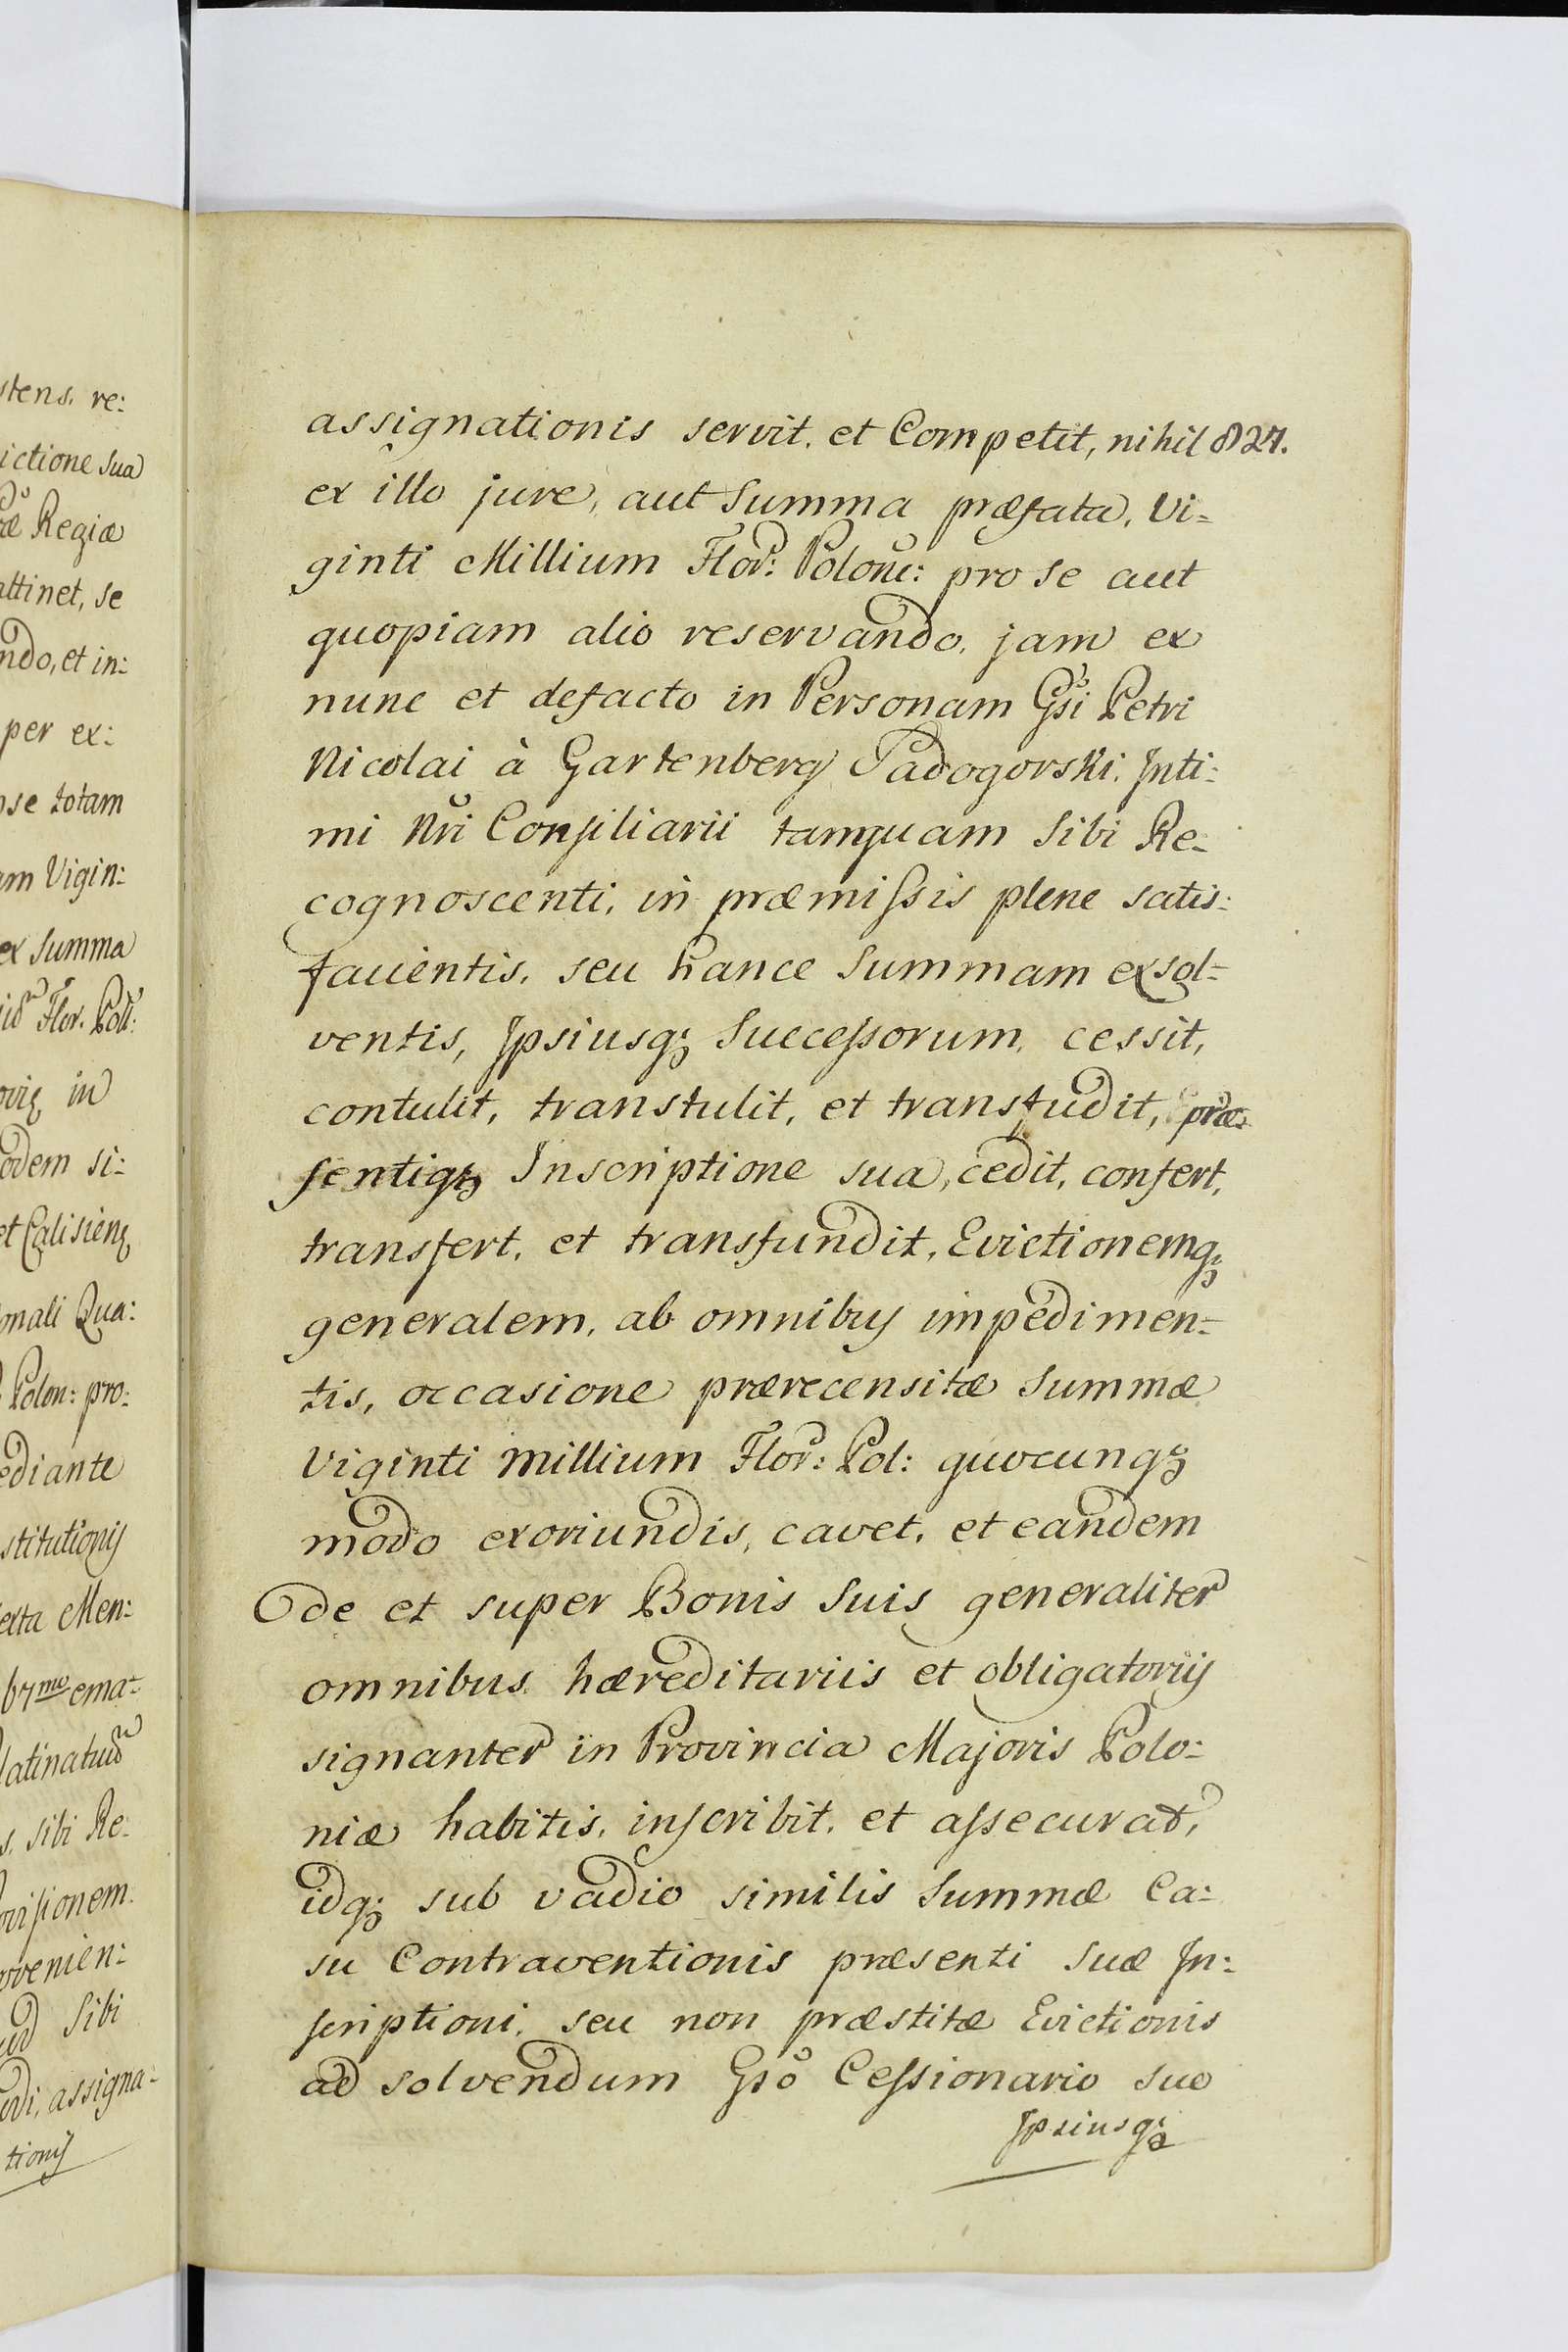 stens. re:
ictione sua
æ Regiæ
attinet, se
ndo, et in:
per ex:
se totam
am Vigin:
ex Summa
Flor. Poll:
in
odem si:
et Calisien̄
onali Qua:
Polon: pro:
ediante
stitutionis
erta Men:
67mo ema=
latinatuū
s. sibi Re:
ovisionem.
ovenien:
Sibi
assigna=
tionis
assignationis servit. et Competit, nihil 827.
ex illo jure, aut Summa præfata, Vi=
ginti Millium Flor: Polonĩc: pro se aut
quopiam alio reservando. jam ex
nunc et defacto in Personam Gsi Petri
Nicolai à Gartenberg Sadogorski. Inti:
mi Nri Consiliarii tamquam Sibi Re:
cognoscenti, in præmissis plene satis:
facientis. seu hance Summam exsol=
ventis, Ipsiusq; Successorum, cessit,
contulit, transtulit, et transfudit, præ=
sentiq; Inscriptione sua, cedit, confert,
transfert, et transfundit, Evictionemq;
generalem, ab omnibus impedimen=
tis, occasione prærecensitæ Summæ
Viginti Millium Flor: Pol: quocunq;
modo exoriundis, cavet, et eandem
de et super Bonis Suis generaliter
omnibus hæreditariis et obligatoriis
signanter in Provincia Majoris Polo:
niæ habitis, inscribit, et assecurat,
idq; sub vadio similis Summæ Ca:
su Contraventionis præsenti Suæ In:
scriptioni, seu non præstitæ Evictionis
ad solvendum Gso Cessionario suo
Ipsiusq;